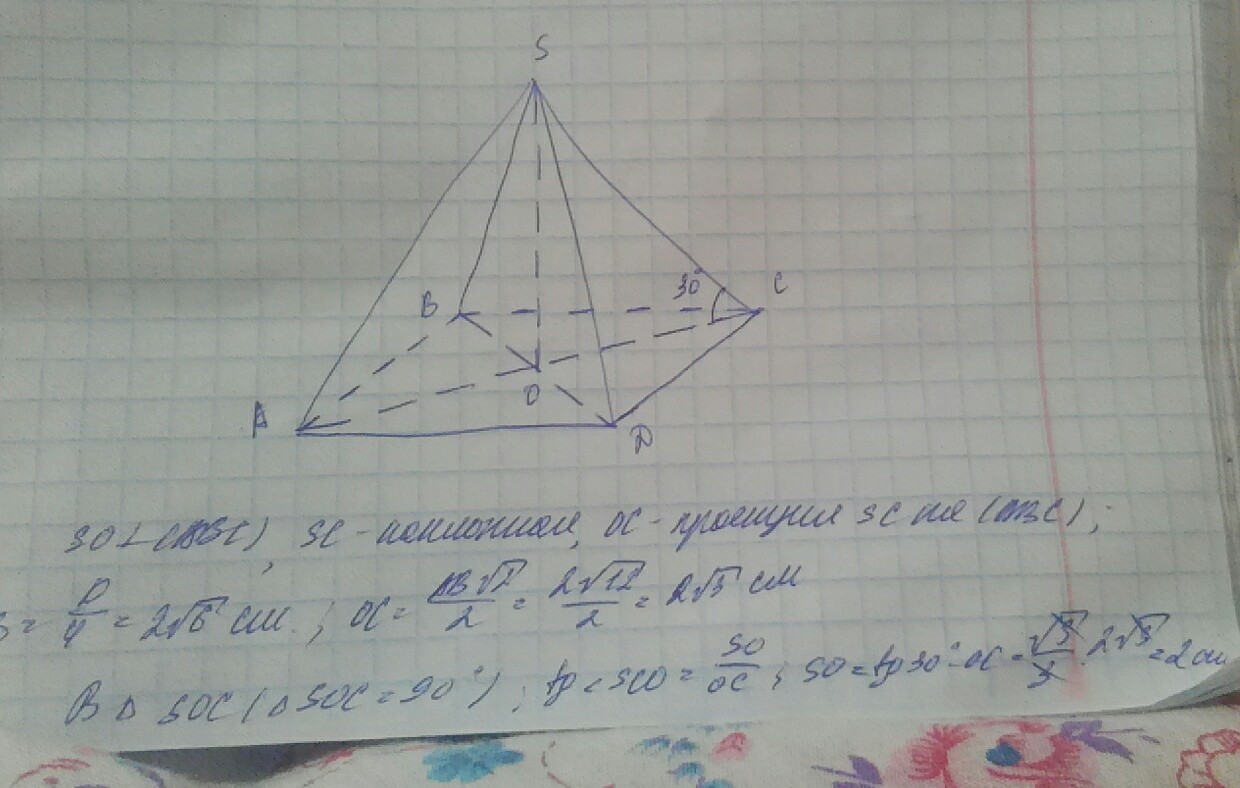 S
B
30°
C
O
A
D
SO⊥(ABC), SC - наклонная, OC - проекция SC на (ABC);
= P/4 = 2√6 см. ; OC = AB√2/2 = 2√12/2 = 2√3 см
В △ SOC (△ SOC = 90°) ; tg < SCO = SO/OC ; SO = tg 30° · OC = √3/3 · 2√3 = 2 см